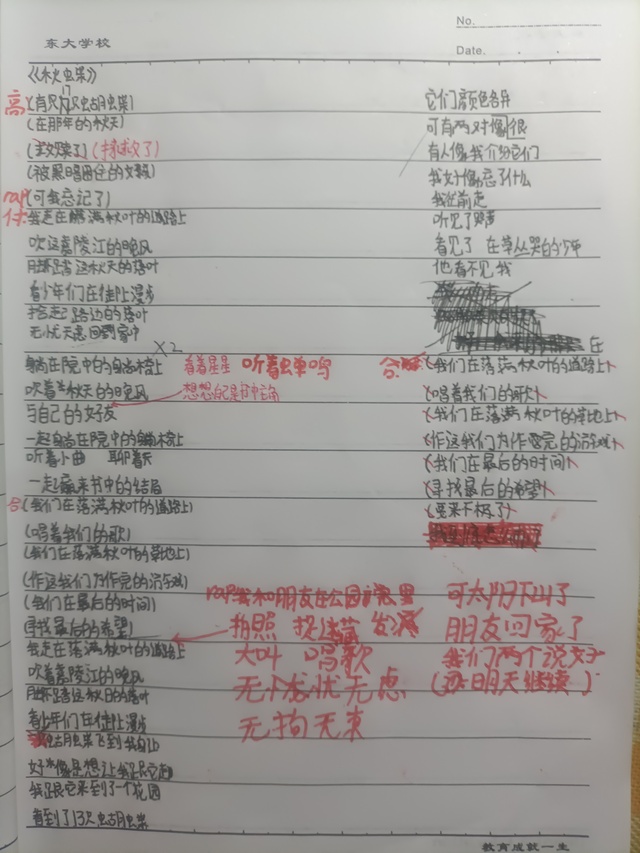 No.
东大学校
Date.
《秋虫枼》
高(有只
(在那年的秋天)
(拯救了)
(可我忘记了)
rap
我走在落满秋叶的道路上
吹这嘉陵江的晚风
脚踩踏这秋天的落叶
看少年们在街上漫步
拾起路边的落叶
无忧无虑回到家中
X2
躺在院中的躺椅上 看着星星 听着虫蝉鸣
吹着秋天的晚风
与自己的好友
一起躺在院中的躺椅上
听着小曲 聊着天
一起 书中的结局
合(我们在落满秋叶的道路上)
(唱着我们的歌)
(我们在落满秋叶的草地上)
(作这我们为作完的游戏)
(我们在最后的时间)
(寻找最后的希望)
我走在落满秋叶的道路上
吹着嘉陵江的晚风
脚踩踏这秋日的落叶
看少年们在街上漫步
蝴蝶飞到我身上
好像是想让我跟它走
我跟它来到了一个花园
看到了13只蝴蝶
它们颜色各异
可有两对像很
有人像我介绍它们
我好像忘了什么
我往前走
听见了哭声
看见了 在草丛哭的少年
他看不见我
在
合(我们在落满秋叶的道路上)
(唱着我们的歌)
(我们在落满秋叶的草地上)
(作这我们为作完的游戏)
(我们在最后的时间)
(寻找最后的希望)
rap我和朋友在公园 里
拍照 捉迷藏 发
大叫 唱歌
无忧无虑
无拘无束
可太阳下山了
朋友回家了
我们两个说好
明天继续)
教育成就一生